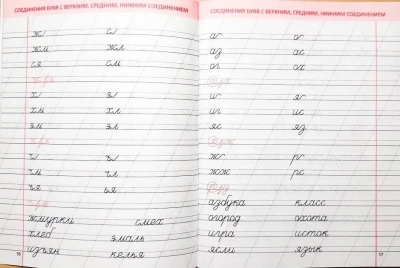 СОЕДИНЕНИЯ БУКВ С ВЕРХНИМ, СРЕДНИМ, НИЖНИМ СОЕДИНЕНИЕМ
жм жл
ся см
х э
хм хл
эм эл
ч ъ
чм чл
ъя ья
жмурки смех
хлеб эмаль
изъян келья
16
СОЕДИНЕНИЯ БУКВ С ВЕРХНИМ, СРЕДНИМ, НИЖНИМ СОЕДИНЕНИЕМ
а о
аз ас
ог ох
и я
иг ис
яс яз
ж р
жж рс
азбука класс
огород охота
игра исток
ясли язык
17